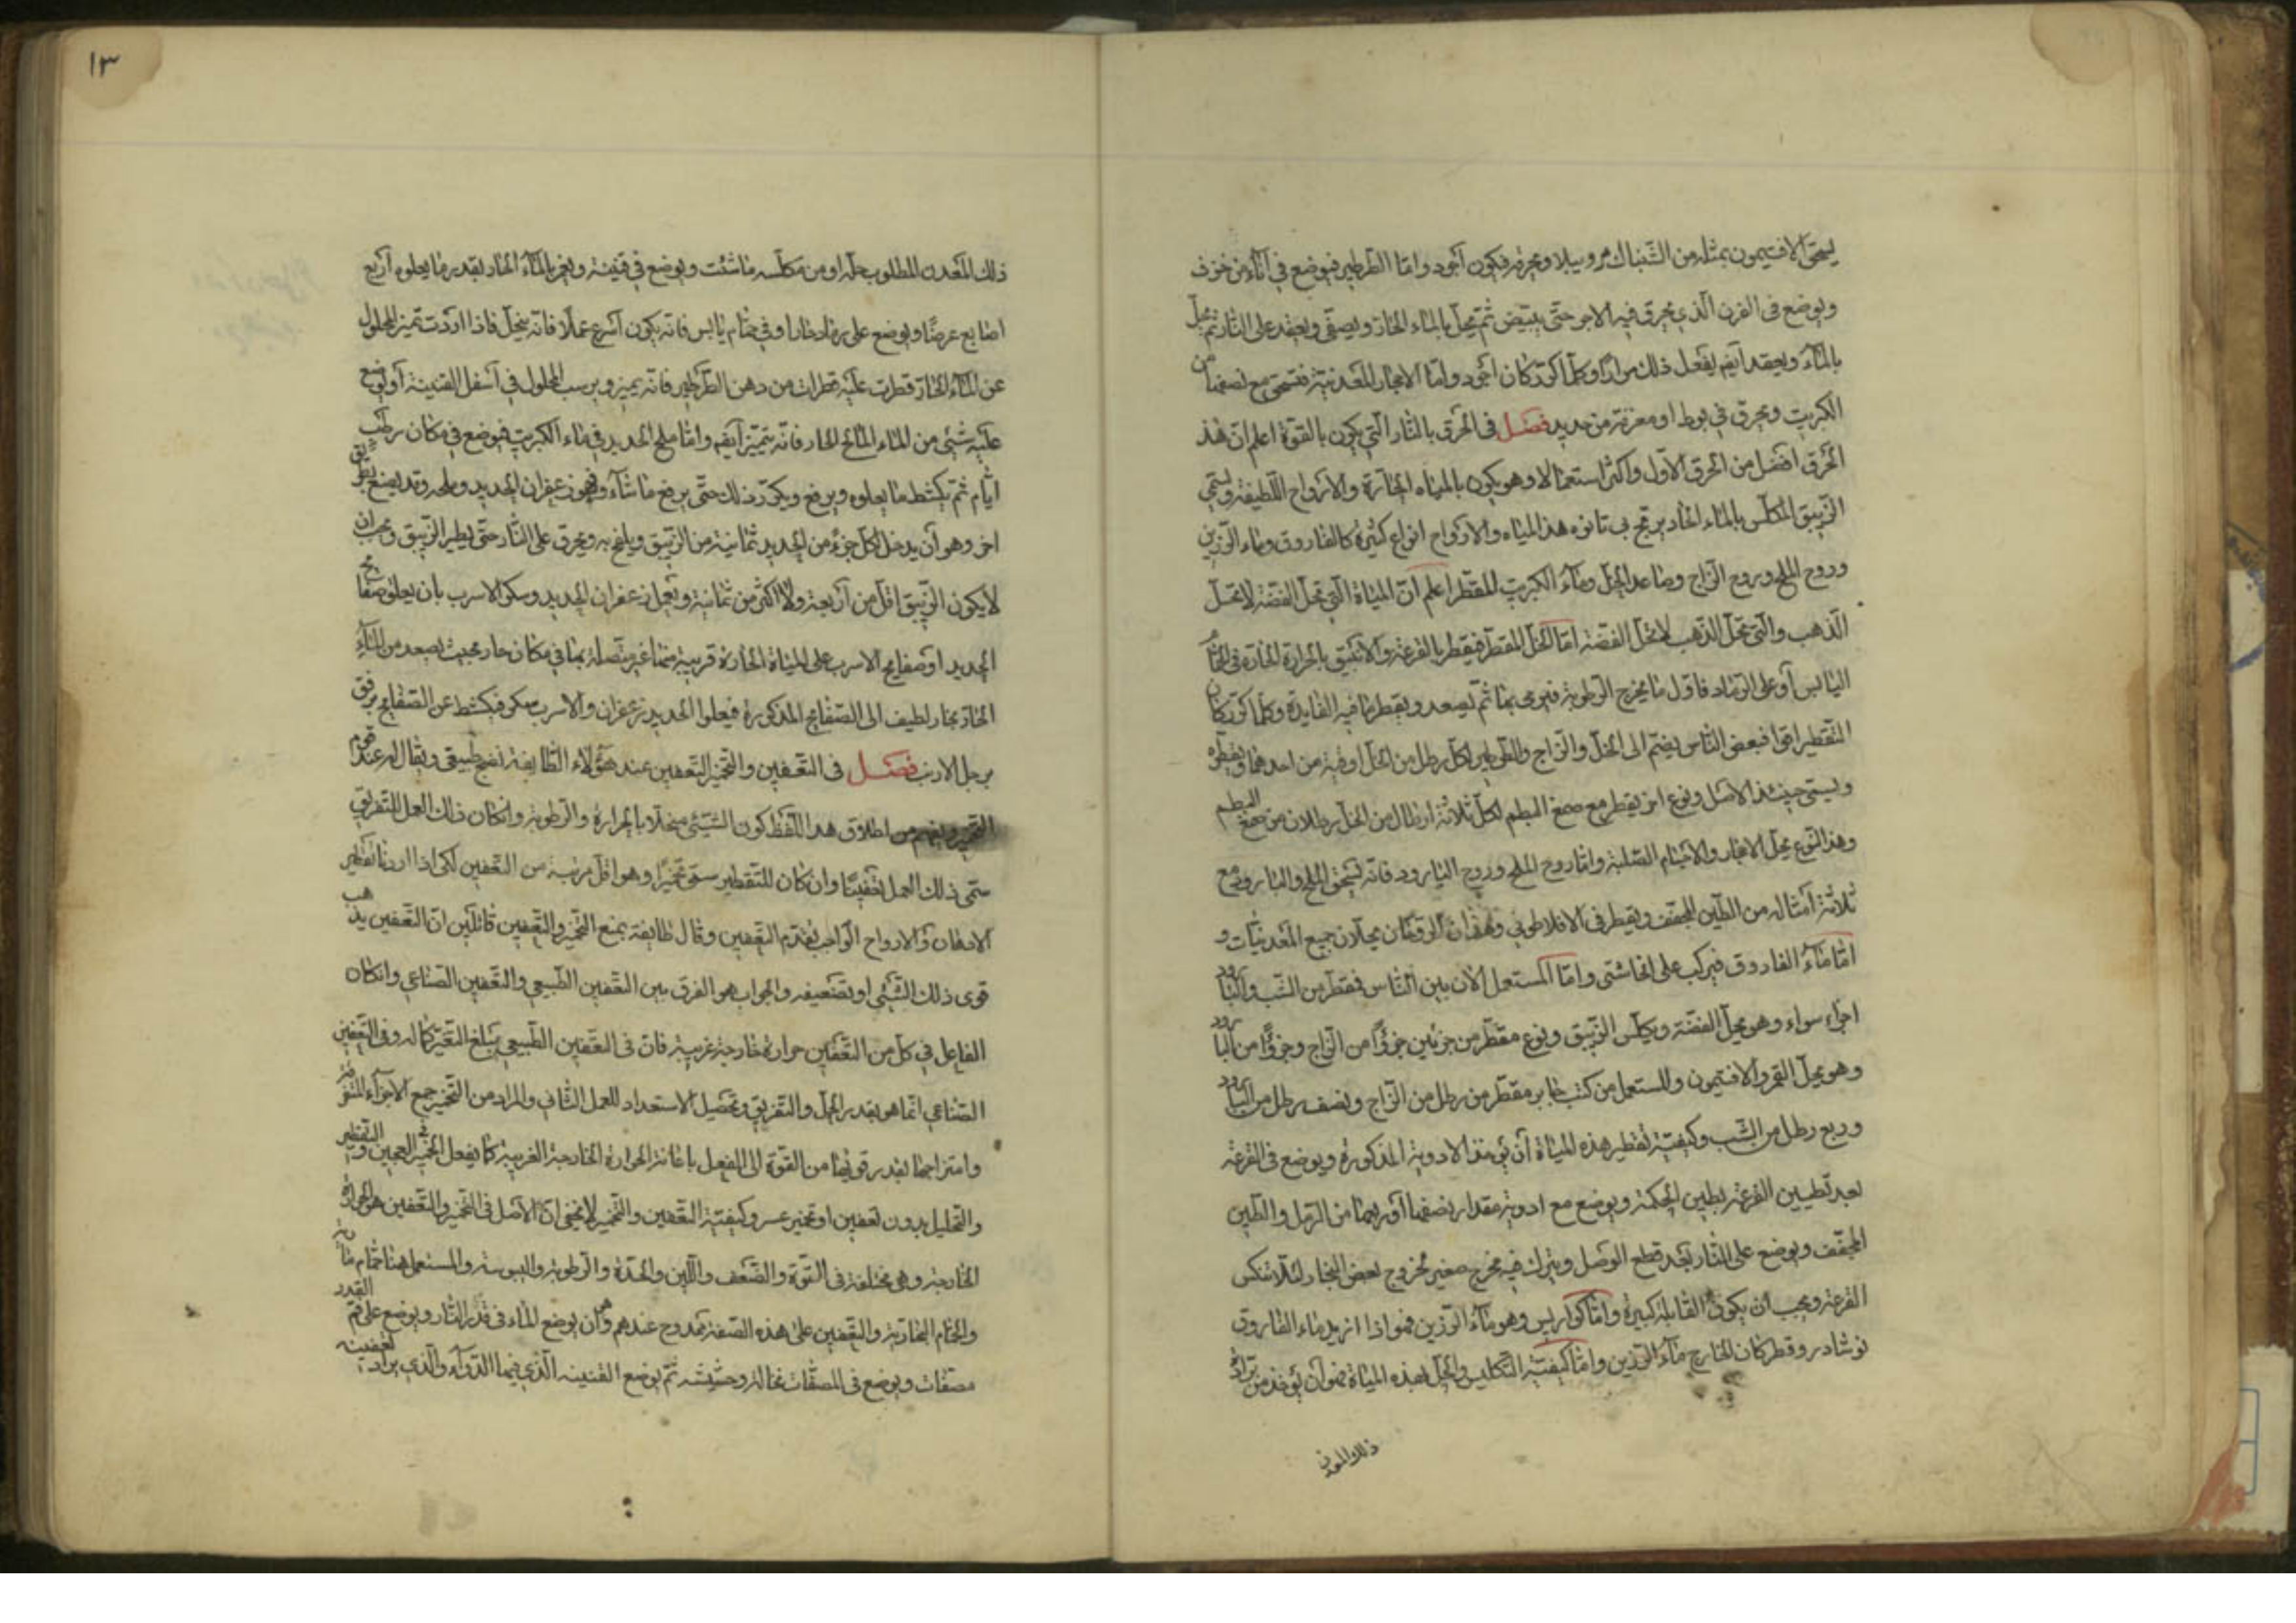 يسحق الافتيمون بمثله من الشنباك مروبيلا ويحرق فيكون أجود واما الطرطير فيوضع في آناء من خزف
ويوضع في الفرن الذي يحرق فيه الاجر حتى يبيّض ثم يحل بالماء الحار ويصفّى ويعقد على النار ثم يحل
بالماء ويعقد ايضم يفعل ذلك مرارًا وكلما كرّر كان أجود وامّا الاحجار المعدنية فتسحق مع نصفها من
الكبريت وتحرق في بوط او مغرفة من حديد فصل في الحرق بالنار التي يكون بالقوة اعلم ان هذ
الحرق افضل من الحرق الاوّل واكثر استعمالا وهو يكون بالمياه الحارة والارواح اللطيفة ويسمّى
الزيبق المكلّس بالماء الحاد هذا المياه والارواح انواع كثيرة كالفاروق وماء الرزين
وروح الملح وروح الزاج وصاعد الخل وماء الكبريت المقطر اعلم انّ المياة التي تحل الفضة لا تحلّ
الذهب والتي تحل الذهب لا تحل الفضة امّا الخل المقطر فيقطر بالقرعة والانبيق بالحرارة الحارة في الحمّام
اليابس أو على الرماد فاول ما يخرج الرطوبة فيرمى بها ثم يصعد ويقطر ما فيه الفايدة وكلما كرّر كان
التقطير اقوا فبعض الناس يضم الى الخل والزاج والطرطير لكل رطل من الخل اوقية من احدهما ويقطره
ويسمّى حينئذ الاصل ونوع اخر يقطر مع صمغ البطم لكل ثلاثة ارطال من الخل رطلان من صمغ البطم
وهذ النوع يحل الاحجار والاجسام الصلبة وامّا روح الملح وروح البارود فانّه يسحق الملح والبارود مع
ثلاثة أمثاله من الطين المجفف ويقطر في الافلاطوني وهذان الروحان يحلان جميع المعدنيات و
امّا ماء الفاروق فيركب على انحا شتى وامّا المستعمل الآن بين النّاس فقطر من الشب والبارود
اجزاء سواء وهو يحل الفضّة ويكلّس الزيبق ونوع مقطّر من جزئين جزؤًا من الزاج وجزؤًا من البارود
وهو يحل القمر والافتيمون والمستعمل من كتب جابر مقطّر من رطل من الزاج ونصف رطل من البارود
وربع رطل من الشب وكيفيّة تقطير هذه المياة أن يؤخذ الادوية المذكورة ويوضع في القرعة
بعد تطيين القرعة بطين الحكمة ويوضع مع ادوية مقدار نصفها أو ربعها من الرمل والطين
المجفف ويوضع على النار بعد قطع الوصل ويترك فيه مخرج صغير لخروج بعض البخار لئلا تنكس
القرعة ويجب ان يكون القابلة كبيرة وامّا كواريس وهو ماء الرزين فهو اذا ازيد ماء الفاروق
نوشادر وقطر كان الخارج ماء الرزين وامّا كيفيّة التكليس والحل بهذه المياة فهو أن يؤخذ من برادة
ذلك المعدن
١٣
ذلك المعدن المطلوب حلّه او من مكلّسه ما شئت ويوضع في قنينة ويغمر بالماء الحاد بقدر ما يعلوه أربع
اصابع عرضًا ويوضع على رماد حار او في حمّام يابس فانه يكون أسرع عملا فانّه ينحلّ فاذا اردت تميز المحلول
عن الماء الحادّ قطرت عليه قطرات من دهن الطرطير فانّه يميز ويرسب المحلول في أسفل القنينة أو يوضع
عليه شئ من الماء المالح الحار فانه يتميّز أيضم وامّا ملح الحديد في ماء الكبريت فيوضع في مكان رطب
ايّام ثم يكشط ما يعلوه ويرفع ويكرّر ذلك حتّى يرفع ما شاء وهو زعفران الحديد وملحه وقد يصنع بطريق
اخر وهو أن يدخل لكل جزء من الحديد ثمانية من الزيبق ويلغم به ويحرق على النار حتّى يطير الزيبق ويجب ان
لا يكون الزيبق اقل من أربعة ولا اكثر من ثمانية ويعمل زعفران الحديد وسكر الاسرب بان يعلق صفايح
الحديد او صفايح الاسرب على المياة الحارة قريبة منها غير متصلة بها في مكان حار بحيث يصعد من الماء
الحادّ بخار لطيف الى الصفايح المذكورة فيعلوا الحديد زعفران والاسرب سكر فيكشط عن الصفايح برفق
برجل الارنب فصل في التعفين والتخمير التعفين عند هؤلاء الطايفة نضج طبيقى ويقال له عند قوم
التخمير ويفهم من اطلاق هذا اللفظ كون الشيئ منحلا بالحرارة والرطوبة وانكان ذلك العمل للتفريق
سمّى ذلك العمل تعفينًا وان كان للتقطير سمّى تخميرًا وهو اقل مرتبة من التعفين لكن اذا اردنا تقطير
الادهان والارواح الواجب تقدّم التعفين وقال طايفة بمنع التخمير والتعفين قائلين انّ التعفين يذهب
قوى ذلك الشيئ او تضعيفه والجواب هو الفرق بين التعفين الطبيعي والتعفين الصناعي وانكان
الفاعل في كل من التعفين حرارة خارجة غريبة فان في التعفين الطبيعي يبلغ التغيّر كماله وفي التعفين
الصناعي انّما هو بقدر الحل والتفريق وتحصيل الاستعداد للعمل الثاني والمراد من التخمير جمع الاجزاء المتفرقة
وامتزاجها بقدر قويها من القوّة الى الفعل باعانة الحرارة الخارجة الغريبة كما يفعل الخمير في العجين والتقطير
والتحليل بدون تعفين او تخمير عسر وكيفيّة التعفين والتخمير لا يخفى انّ الاصل في التخمير والتعفين هو الحرارة
الخارجة وهي مختلفة في القوّة والضّعف واللّين والحدّة والرطوبة واليبوسة والمستعمل هنا حمّام مارية
والحمّام البخارية والتعفين على هذه الصفة ممدوح عندهم وهي أن يوضع الماء في قدر النار ويوضع على فم القدر
مصفات ويوضع في المصفات نخالة وحشيشه ثم يوضع القنينه الذي فيها الدواء والذي يراد تعفينه